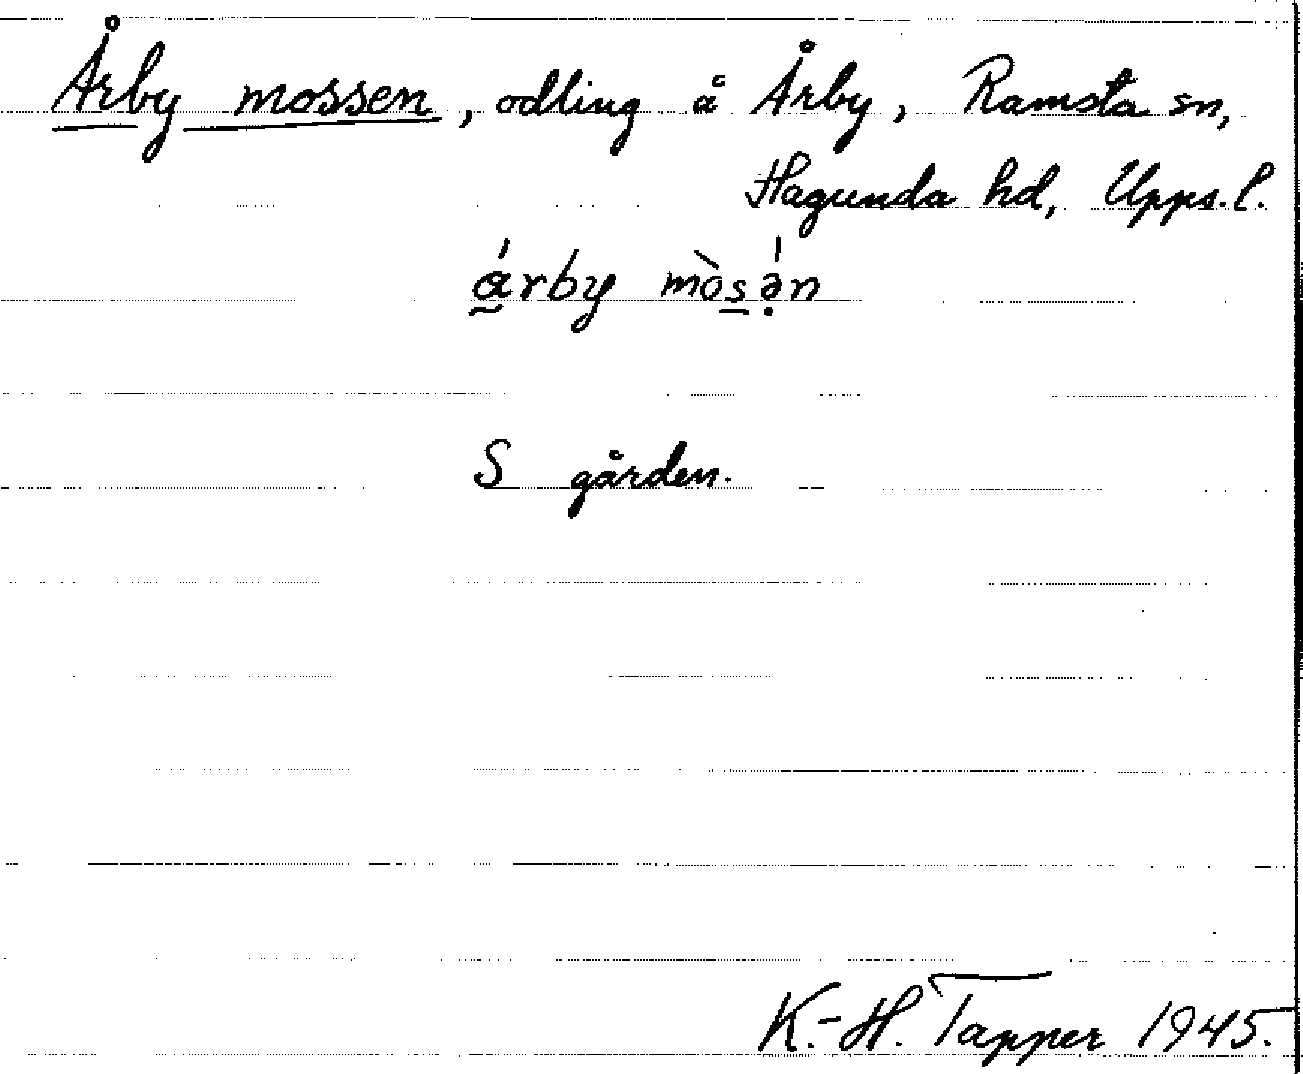 Årby mossen, odling å Årby, Ramsta sn,
Hagunda hd, Upps. l.
á̰rby mòs̠ə̣́n
S gården.
K.-H. Tapper 1945.